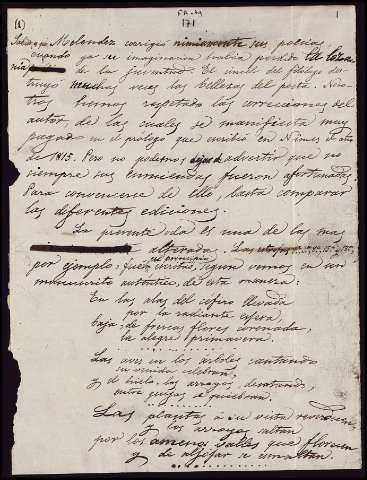 (1)
FA-M
171
1
Sabido es que Melendez corrigió nimiamente sus poesias,
cuando ya su imaginacion habia perdido el loza-
nia de la juventud. El cincel del filólogo des-
truyó muchas veces las bellezas del poeta. Noso-
tros hemos respetado las correcciones del
autor de las cuales se manifiesta muy
pagado en el prólogo que escribió en Nimes el año
de 1815. Pero no podemos dejar de advertir que no
siempre sus enmiendas fueron afortunadas.
Para convencerse de ello, basta comparar
las diferentes ediciones.
La presente oda es una de las mas
alteradas. Las
por ejemplo, fueron escritas, al principio segun vemos en un
manuscrito autentico, de esta manera:
En las alas del céfiro llevada
por la radiante esfera,
baja de frescas flores coronada,
la alegre primavera.
Las aves en los árboles cantando
su venida celebran,
y de hielo los arroyos desatando,
entre guijas se quiebran.
Las plantas á su vista reverdecen,
y los arroyos saltan
por los amenos valles que florecen
y de aljofar se esmaltan.